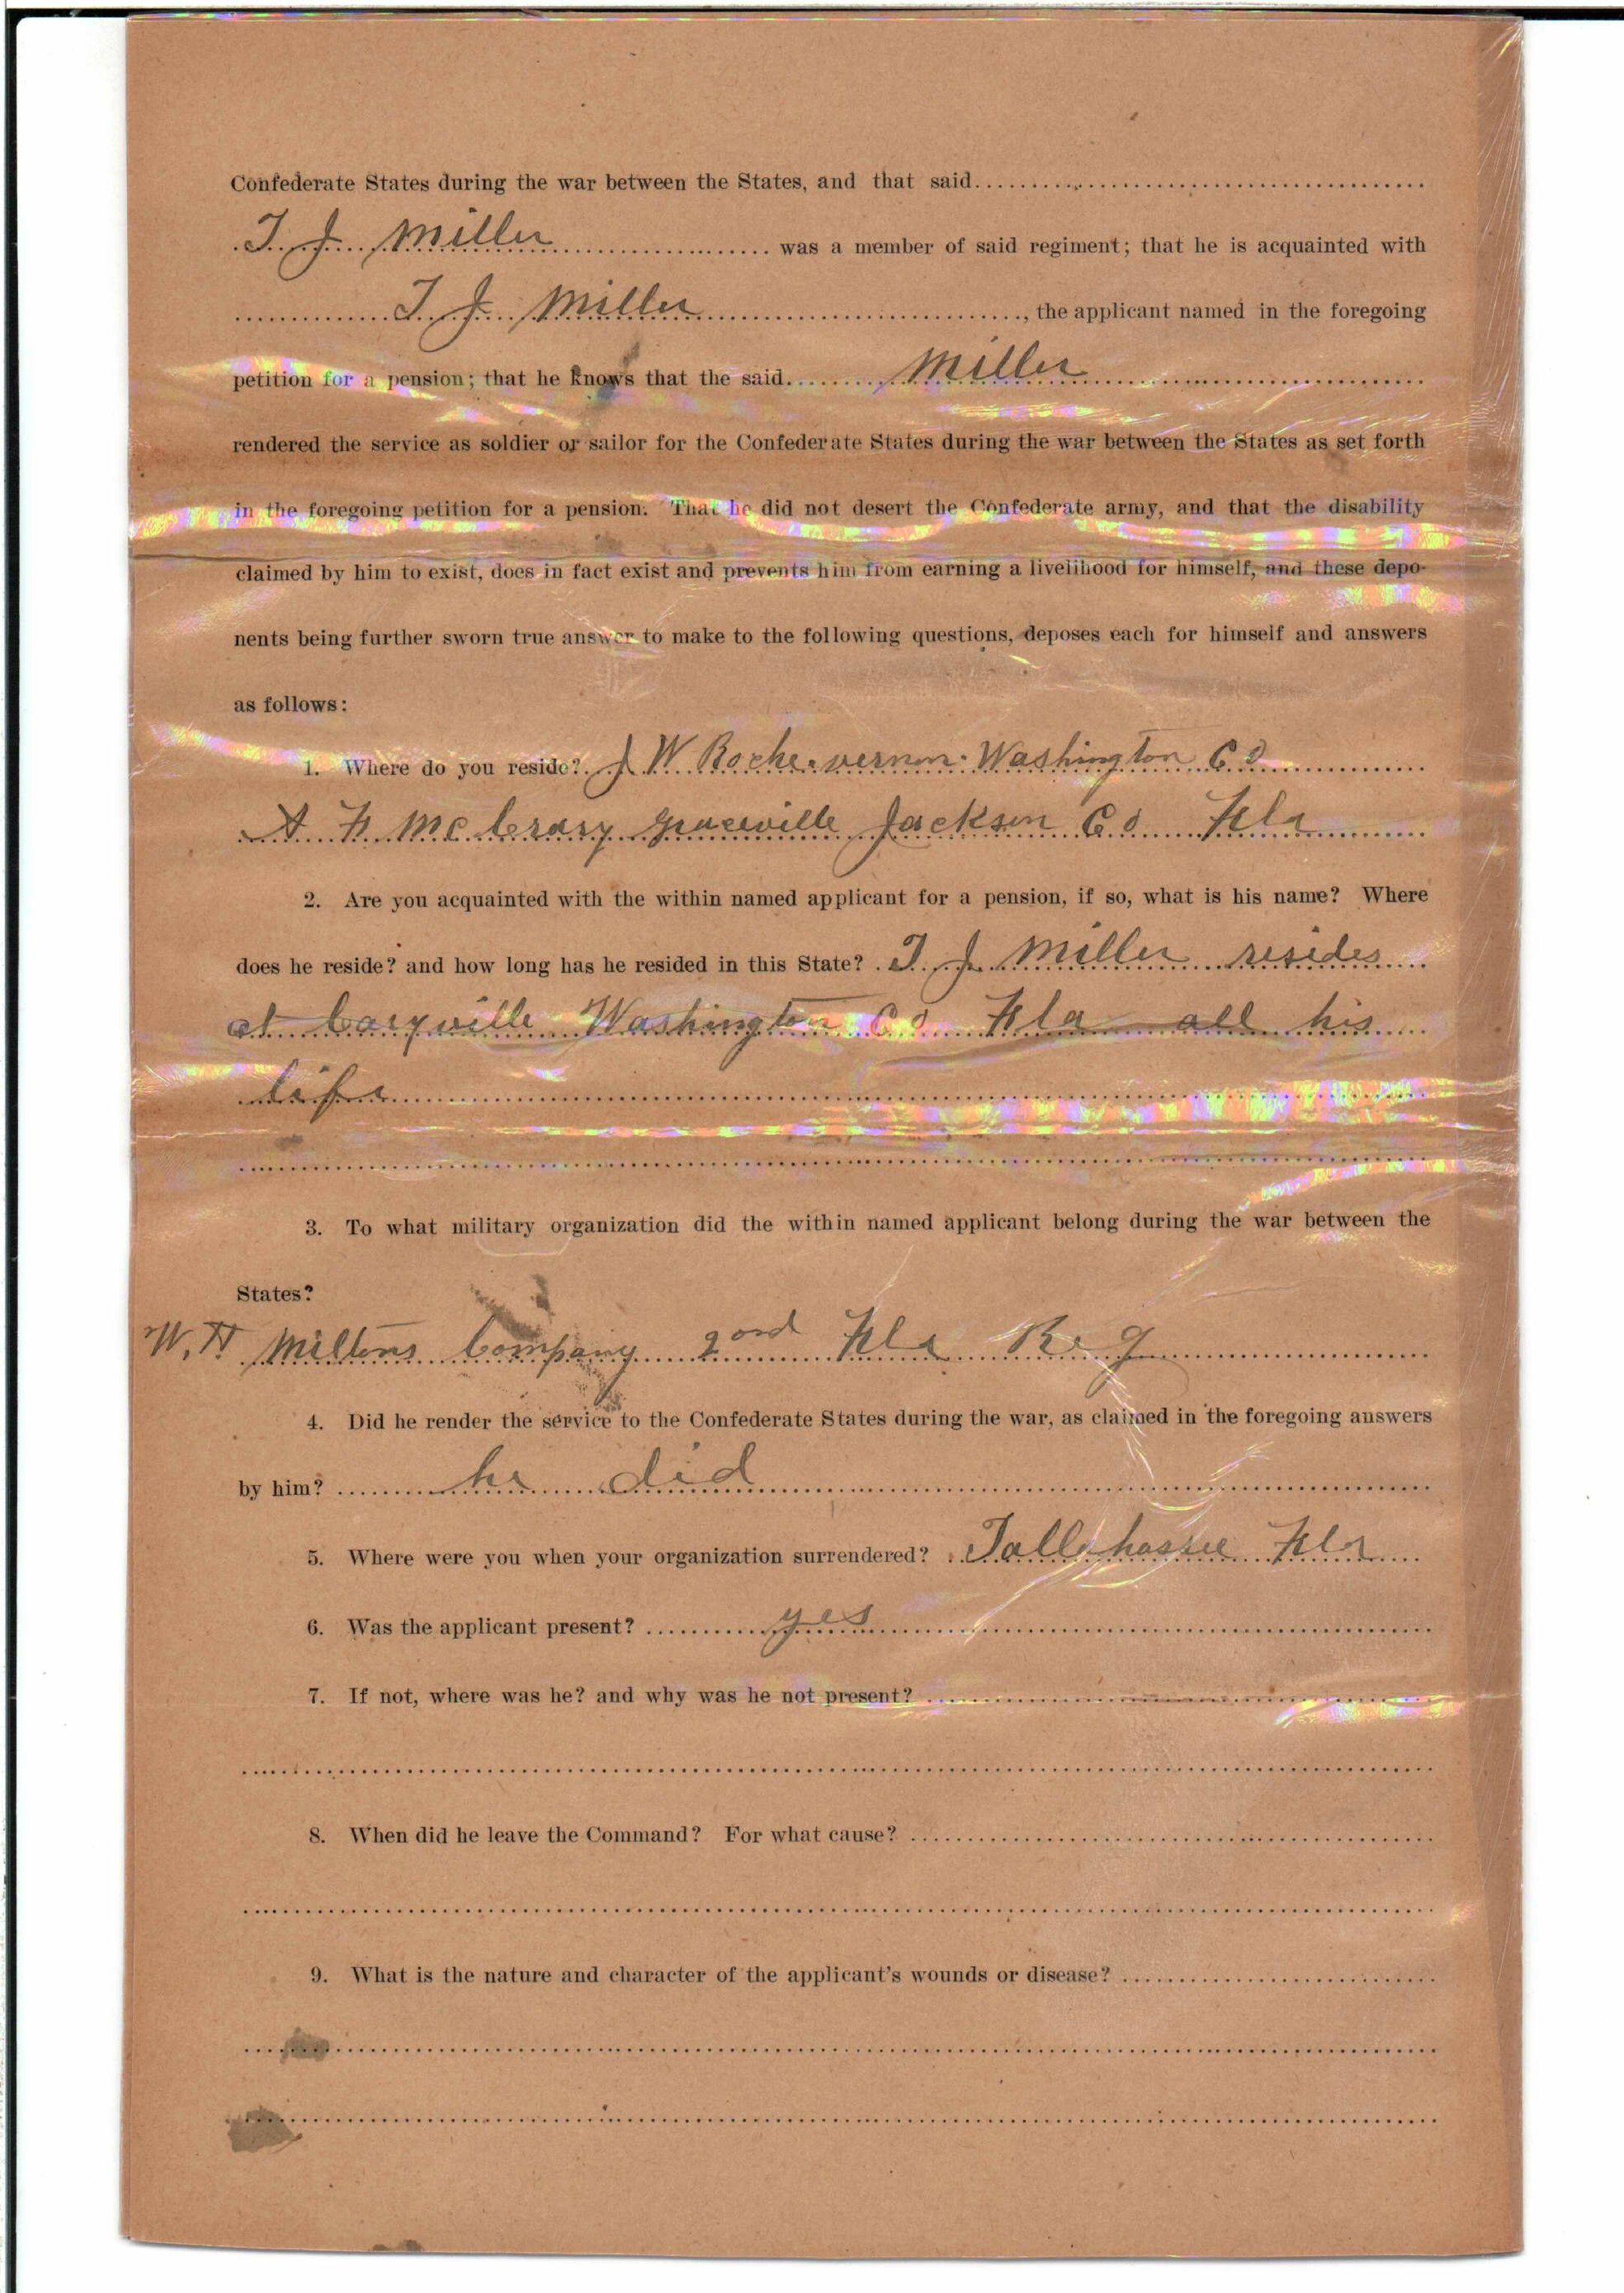 Confederate States during the war between the States, and that said
T J Miller was a member of said regiment; that he is acquainted with
T J Miller, the applicant named in the foregoing
petition for a pension; that he knows that the said Miller
rendered the service as soldier or sailor for the Confederate States during the war between the States as set forth
in the foregoing petition for a pension. That he did not desert the Confederate army, and that the disability
claimed by him to exist, does in fact exist and prevents him from earning a livelihood for himself, and these depo-
nents being further sworn true answer to make to the following questions, deposes each for himself and answers
as follows:
1. Where do you reside? J W Roche vernon Washington Co
A F McCrary Graceville Jackson Co Fla
2. Are you acquainted with the within named applicant for a pension, if so, what is his name? Where
does he reside? and how long has he resided in this State? T J Miller resides
at Caryville Washington Co Fla all his
life
3. To what military organization did the within named applicant belong during the war between the
States?
W. H Miltons Company 2ond Fla Reg
4. Did he render the service to the Confederate States during the war, as claimed in the foregoing answers
by him? he did
5. Where were you when your organization surrendered? Tallehassee Fla
6. Was the applicant present? yes
7. If not, where was he? and why was he not present?
8. When did he leave the Command? For what cause?
9. What is the nature and character of the applicant's wounds or disease?